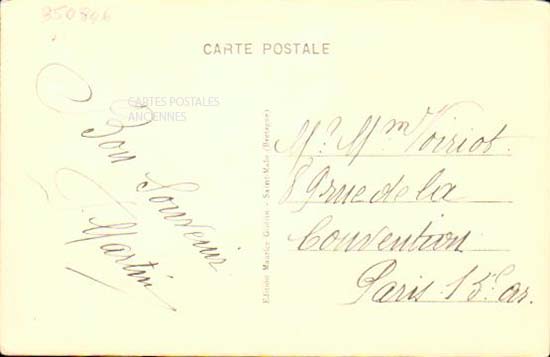 850846
CARTE POSTALE
CARTES POSTALES
ANCIENNES
Bon Souvenir
J. Martin
Editions Maurice - Saint-Malo (Bretagne)
Mr. Mme Voiriot.
89 rue de la
Convention
Paris 15e ar.